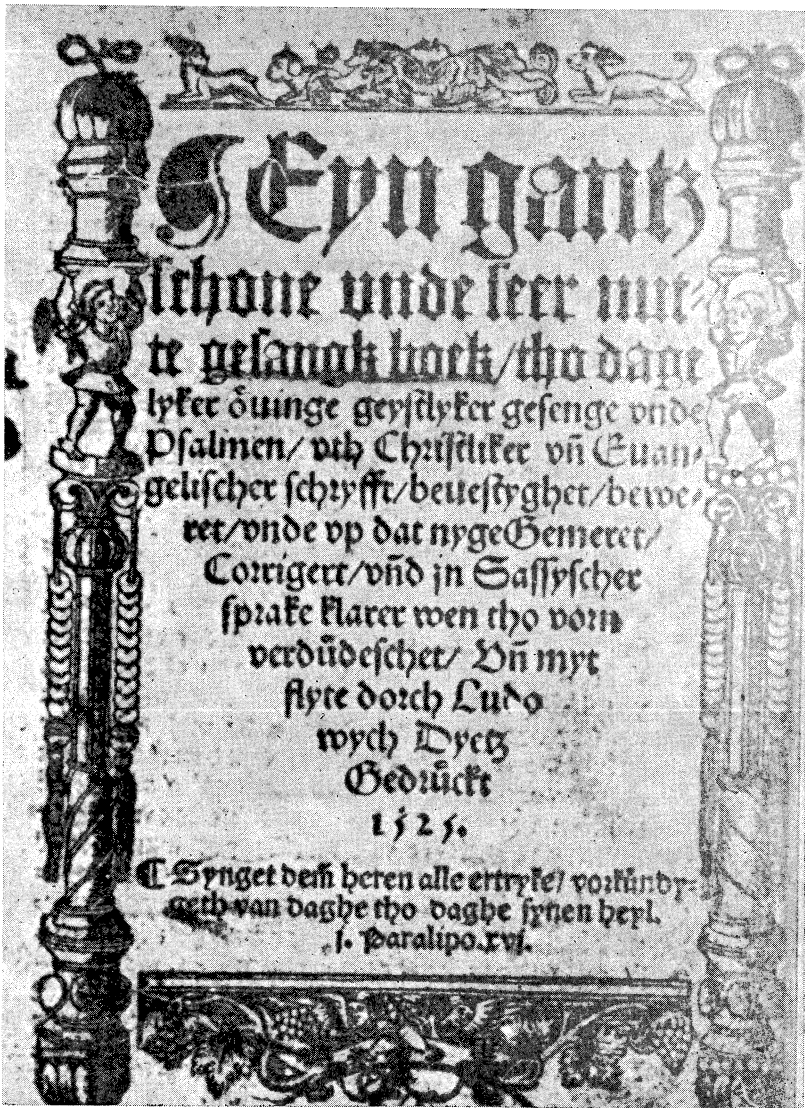 ¶Eyn gantz
schone vnde seer nut-
te gesangk boek/tho dage
lyker ouinge geystlyker gesenge vnde
Psalmen/ vth Christliker vñ Euan-
gelischer schryfft/beuestyghet/bewe-
ret/vnde vp dat nyge Gemeret/
Corrigert/vñd jn Sassyscher
sprake klarer wen tho vorn
verdüdeschet/ Vñ myt
flyte dorch Ludo
wych Dyetz
Gedrückt
1525.
¶ Synget dem̃ heren alle ertryke/ vorkündy-
geth van daghe tho daghe synen heyl.
j. Paralipo.xvj.